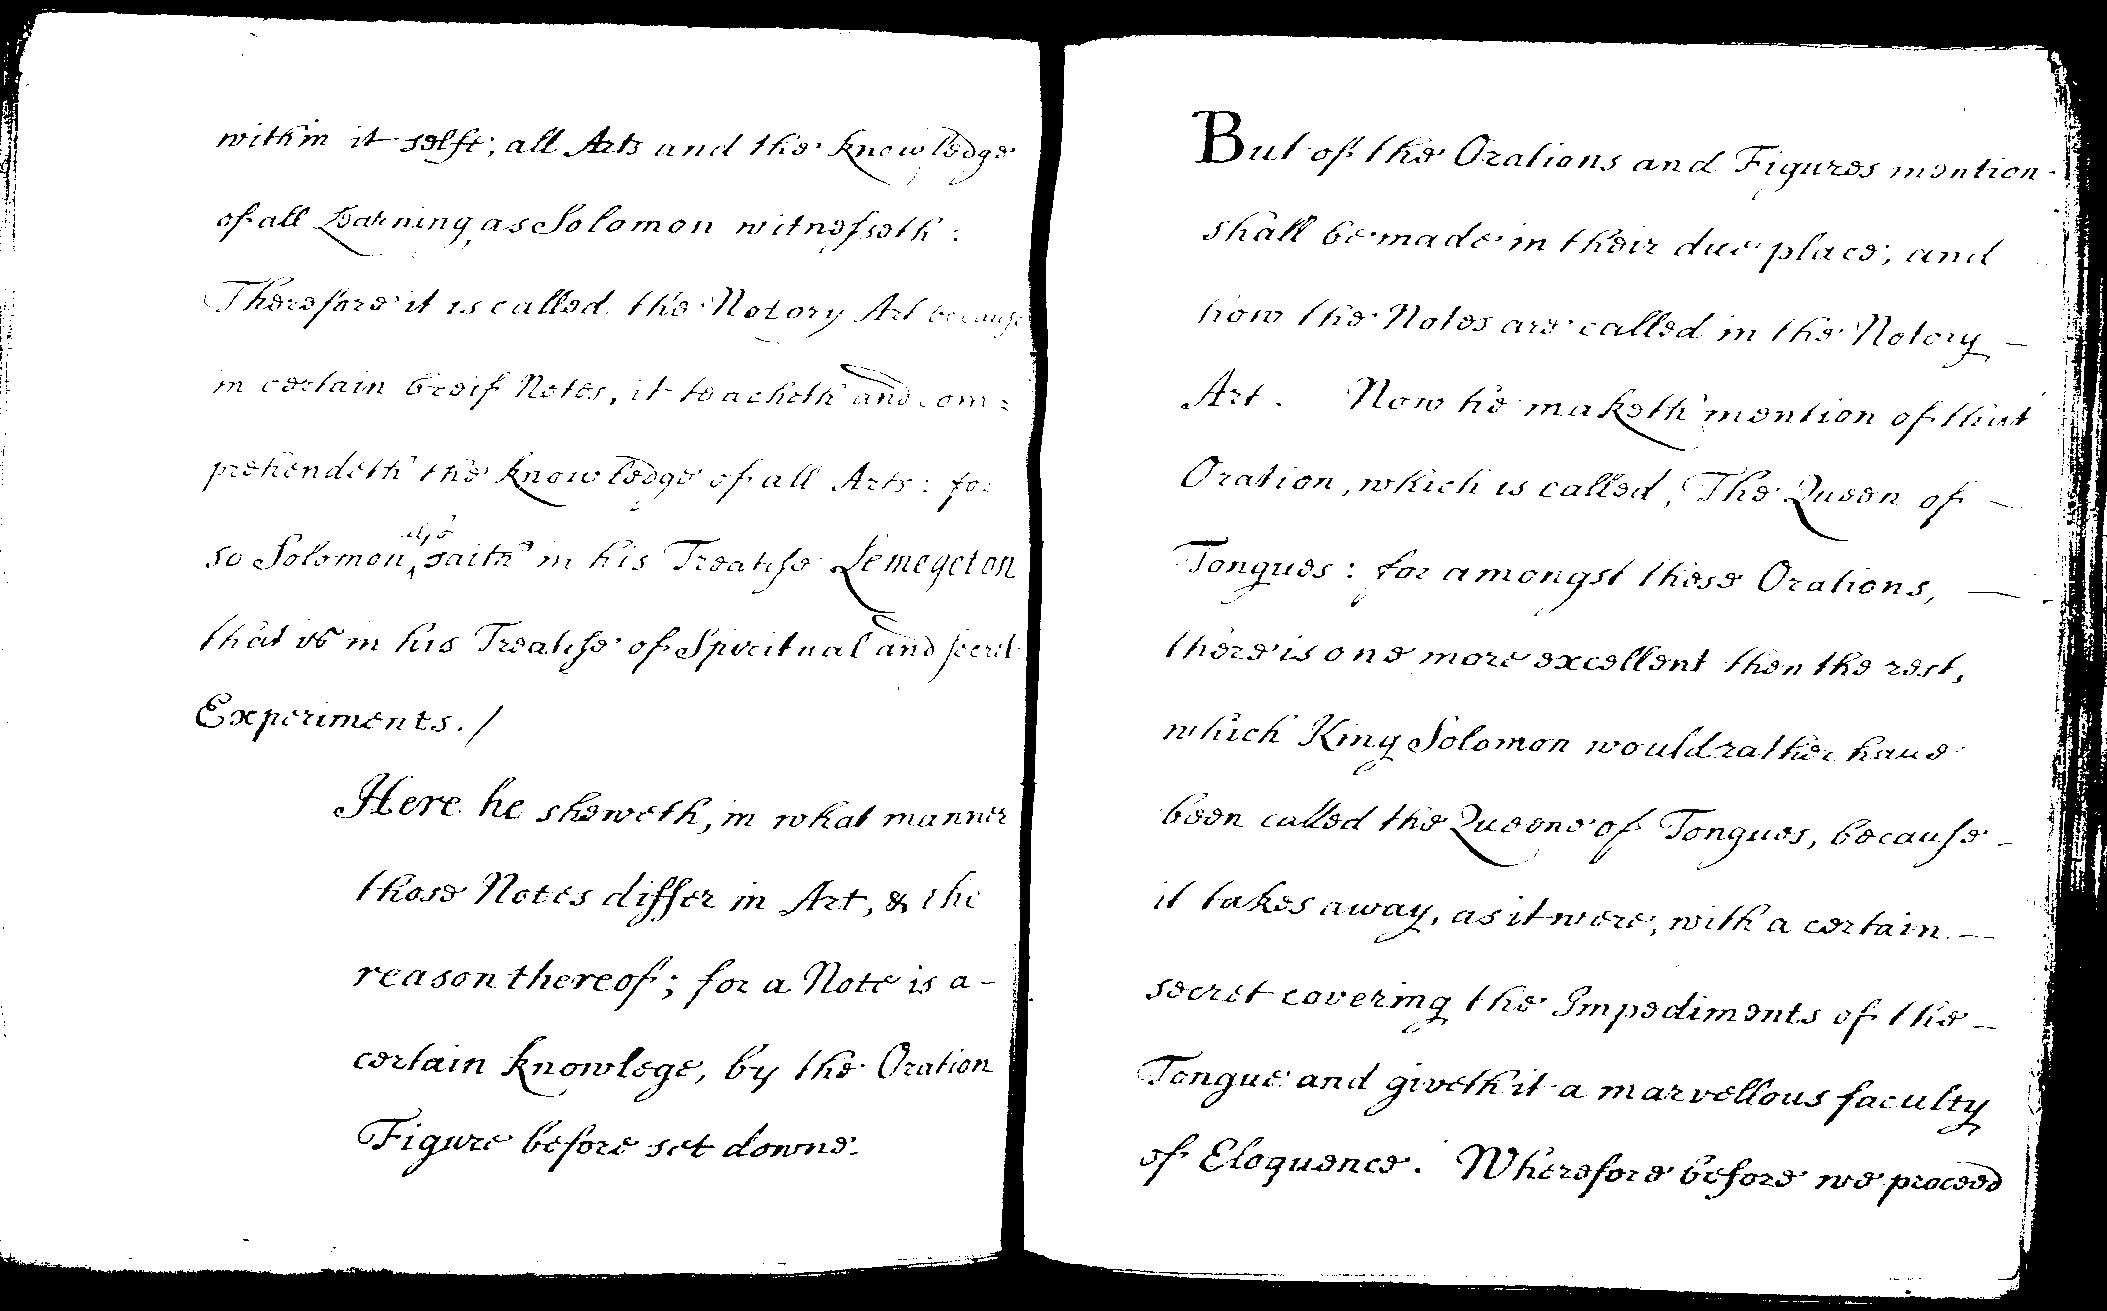 within it selfe, all Arts and the knowledge
of all Learning, as Solomon witnesseth :
Therefore it is called the Notory Art because
in certain breif Notes, it teacheth and com=
prehendeth the knowledge of all Arts: for
so Solomon ^also saith in his Treatise Lemegeton
that is in his Treatise of Spiritual and secret
Experiments. /
Here he sheweth, in what manner
those Notes differ in Art, & the
reason thereof; for a Note is a -
certain knowlege, by the Oration
Figure before set downe.
But of the Orations and Figures mention
shall be made in their due place, and
how the Notes are called in the Notory —
Art. Now he maketh mention of that
Oration, which is called, The Queen of —
Tongues: for amongst these Orations, —
there is one more excellent then the rest,
which King Solomon would rather haue
been called the Queene of Tongues, because -
it takes away, as it were, with a certain —
secret covering the Impediments of the —
Tongue and giveth it a marvellous faculty
of Eloquence. Wherefore before we proceed